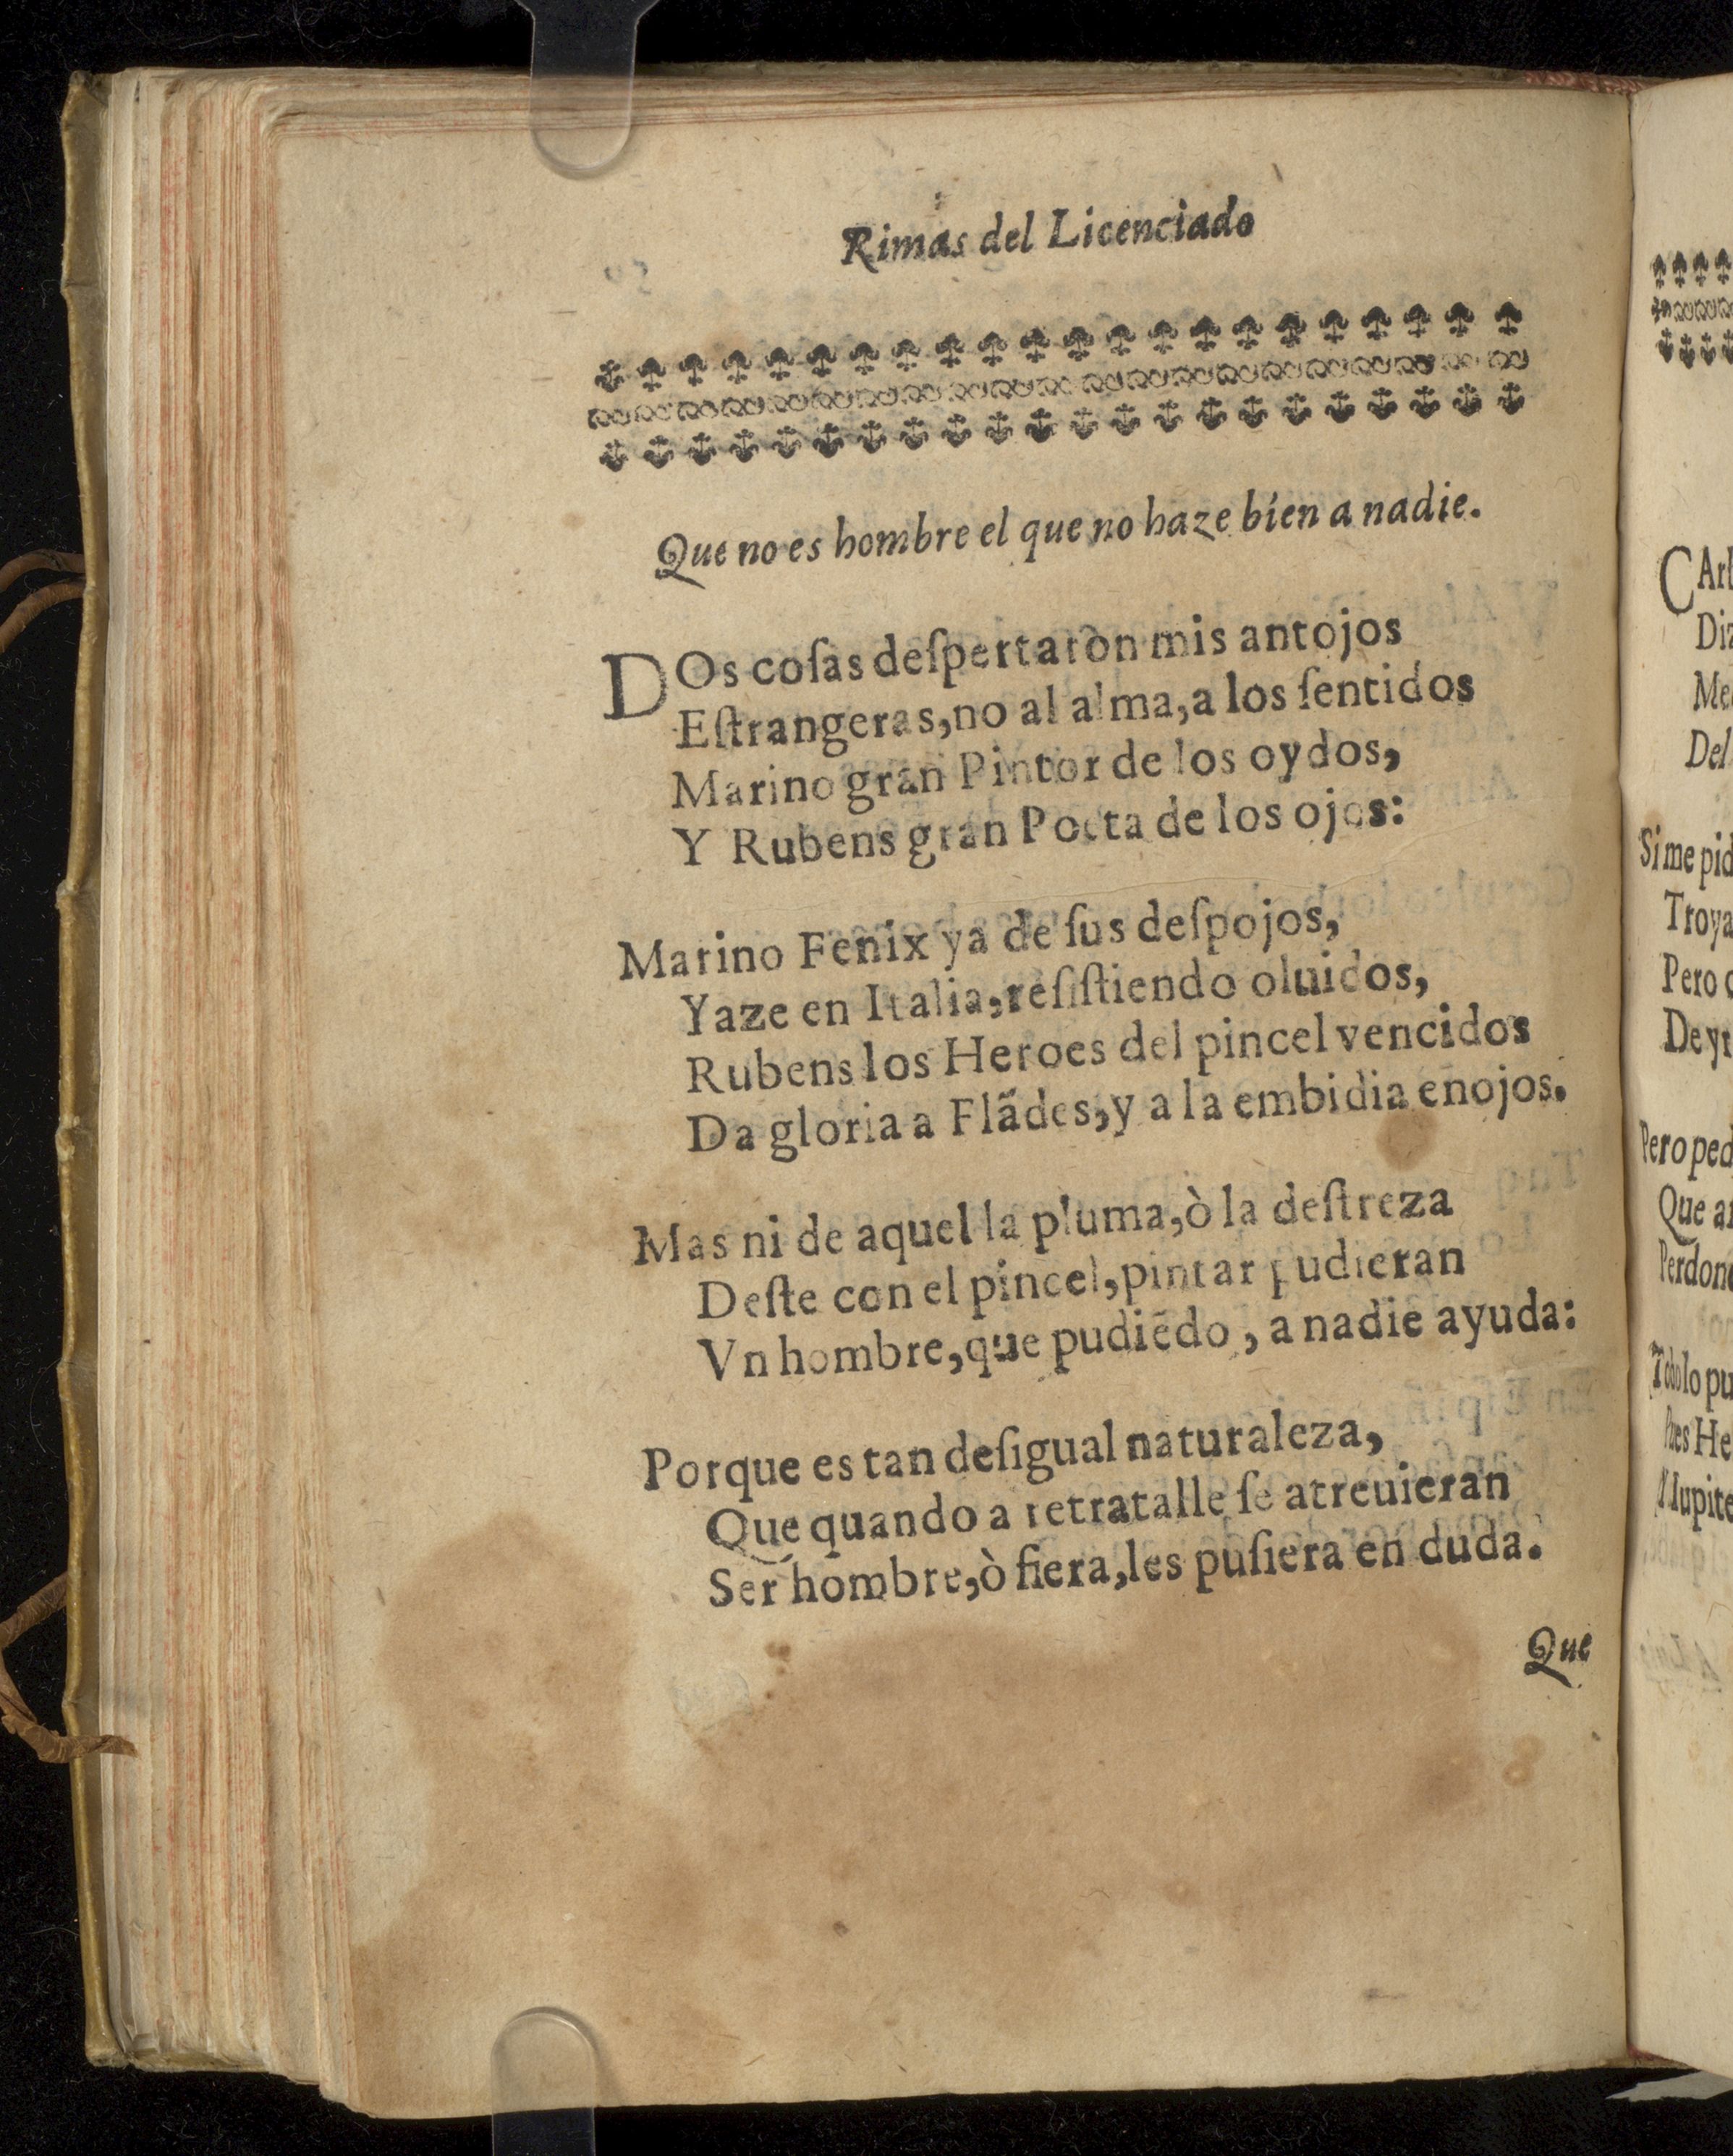 Rimas del Licenciado
Que no es hombre el que no haze bien a nadie.
DOs coſas deſpertaron mis antojos
Eſtrangeras, no al alma, a los ſentidos
Marino gran Pintor de los oydos,
Y Rubens gran Poeta de los ojos:
Marino Fenix ya de ſus deſpojos,
Yaze en Italia, reſiſtiendo oluidos,
Rubens los Heroes del pincel vencidos
Da gloria a Flãdes, y a la embidia enojos.
Mas ni de aquel la pluma, ò la deſtreza
Deſte con el pincel, pintar pudieran
Vn hombre, que pudiẽdo, a nadie ayuda:
Porque es tan deſigual naturaleza,
Que quando a retratalle ſe atreuieran
Ser hombre, ò fiera, les puſiera en duda.
Que
CArl
Diz
Me
Del
Si me pid
Troya
Pero
De yr
Pero ped
Que a
Perdon
Todo lo pu
Pues He
Iupite